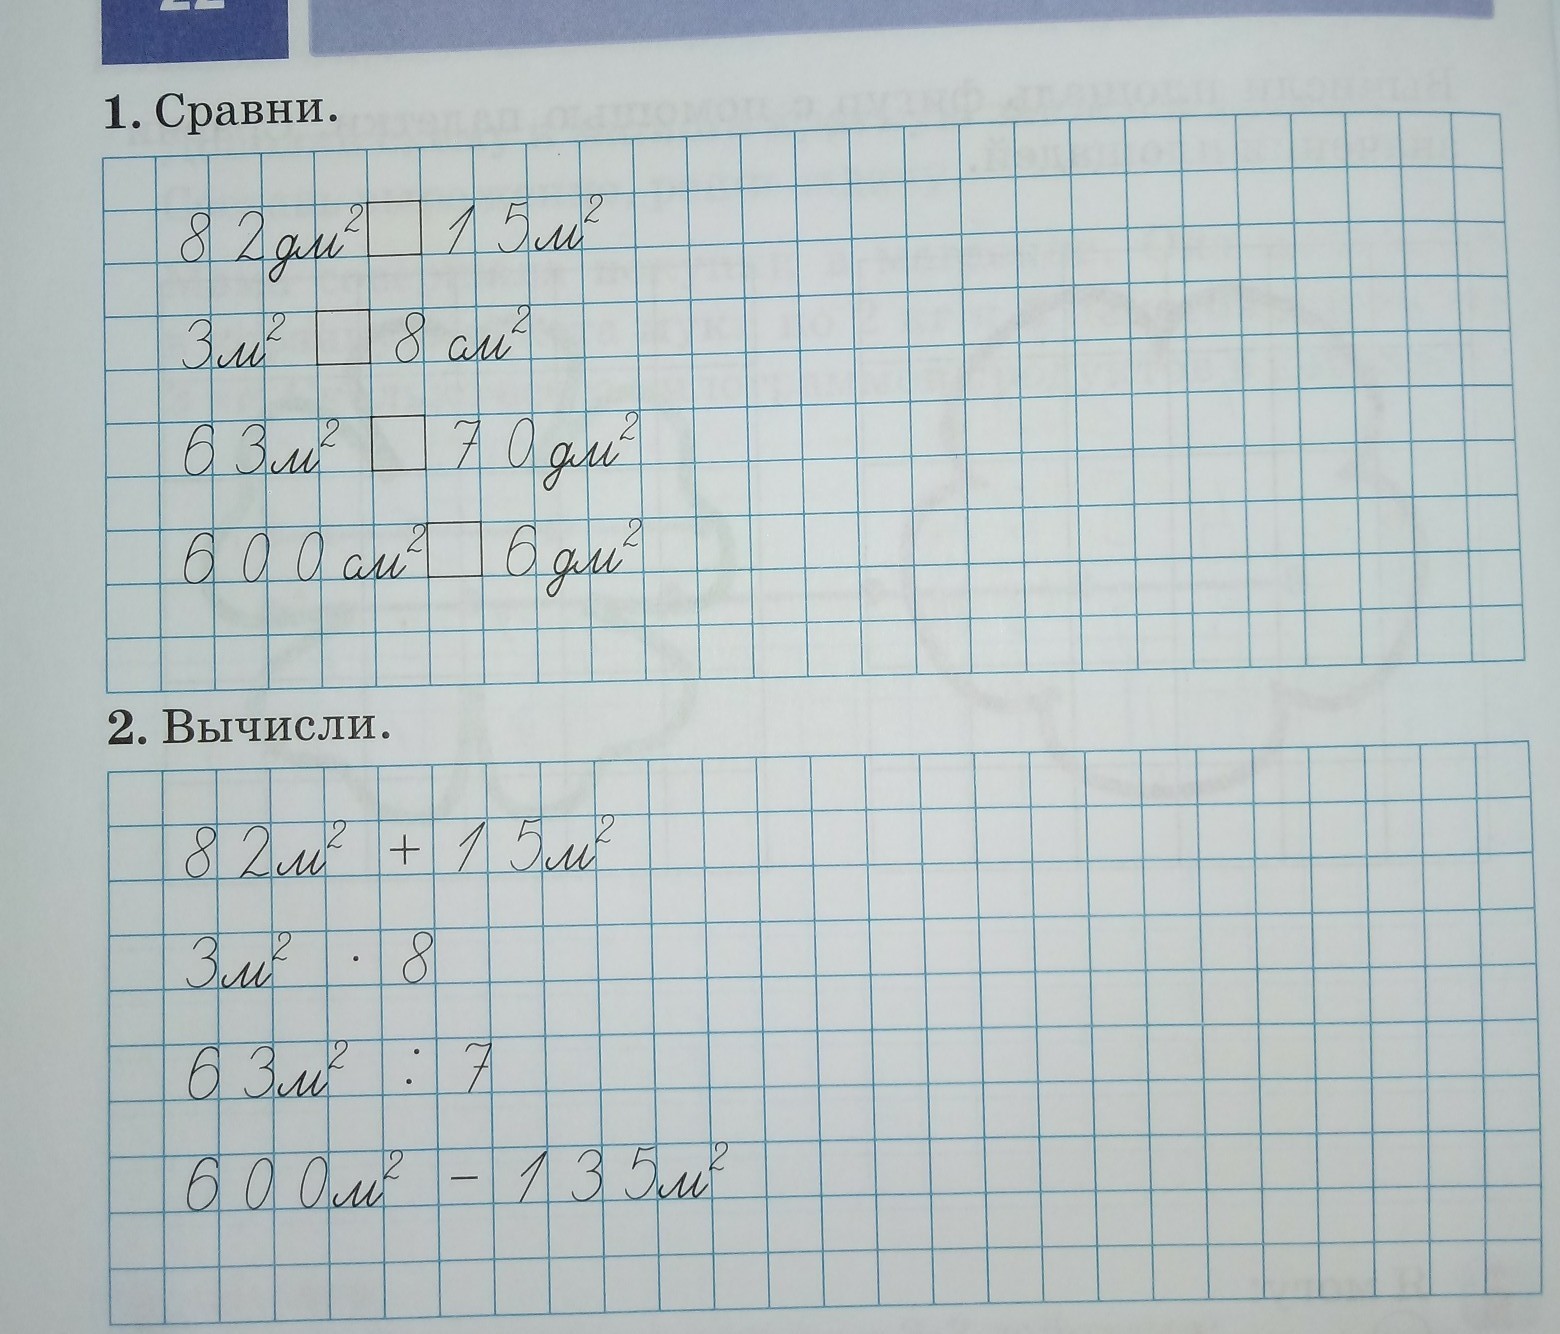 22
1. Сравни.
82 дм² □ 15 м²
3 м² □ 8 см²
63 м² □ 70 дм²
600 см² □ 6 дм²
2. Вычисли.
82 м² + 15 м²
3 м² · 8
63 м² : 7
600 м² − 135 м²